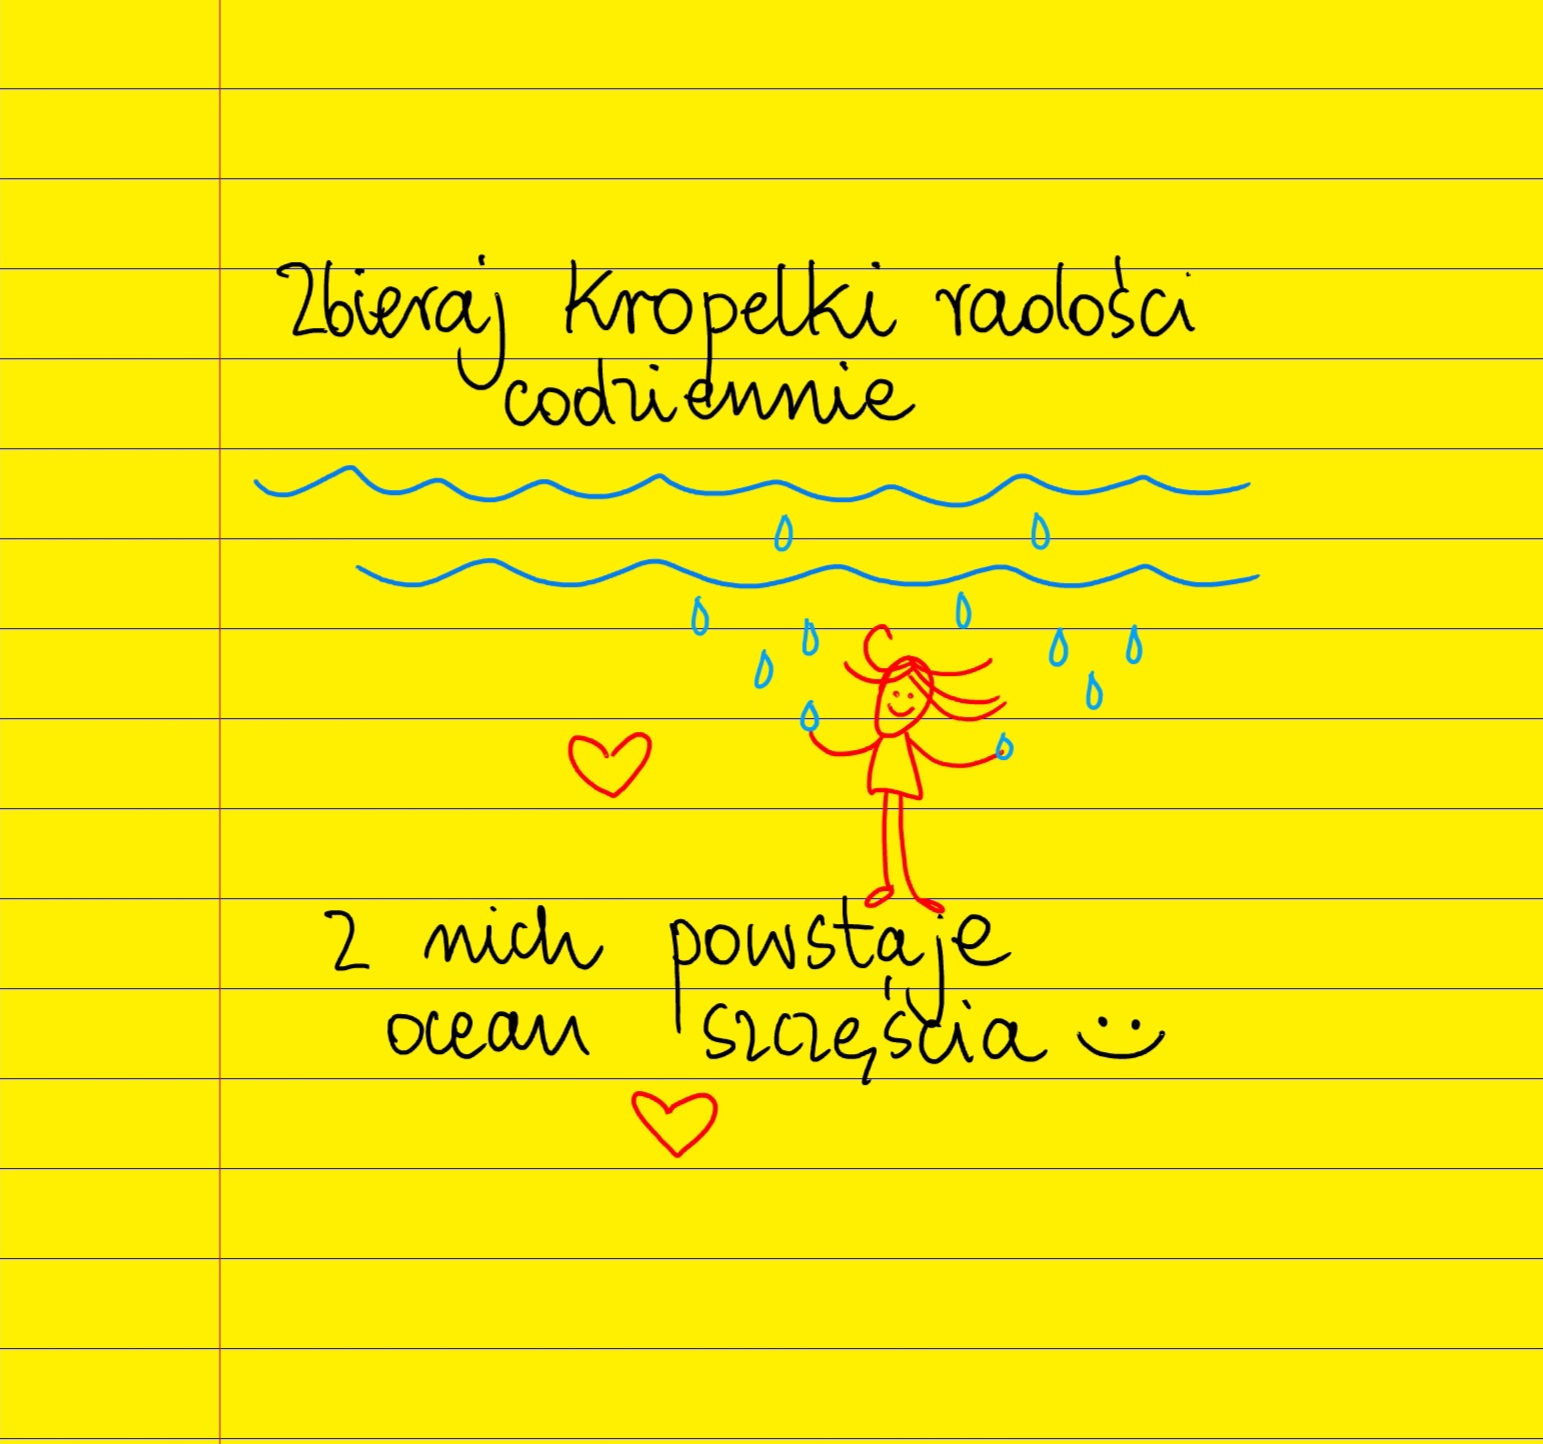 Zbieraj Kropelki radości
codziennie
Z nich powstaje
ocean szczęścia